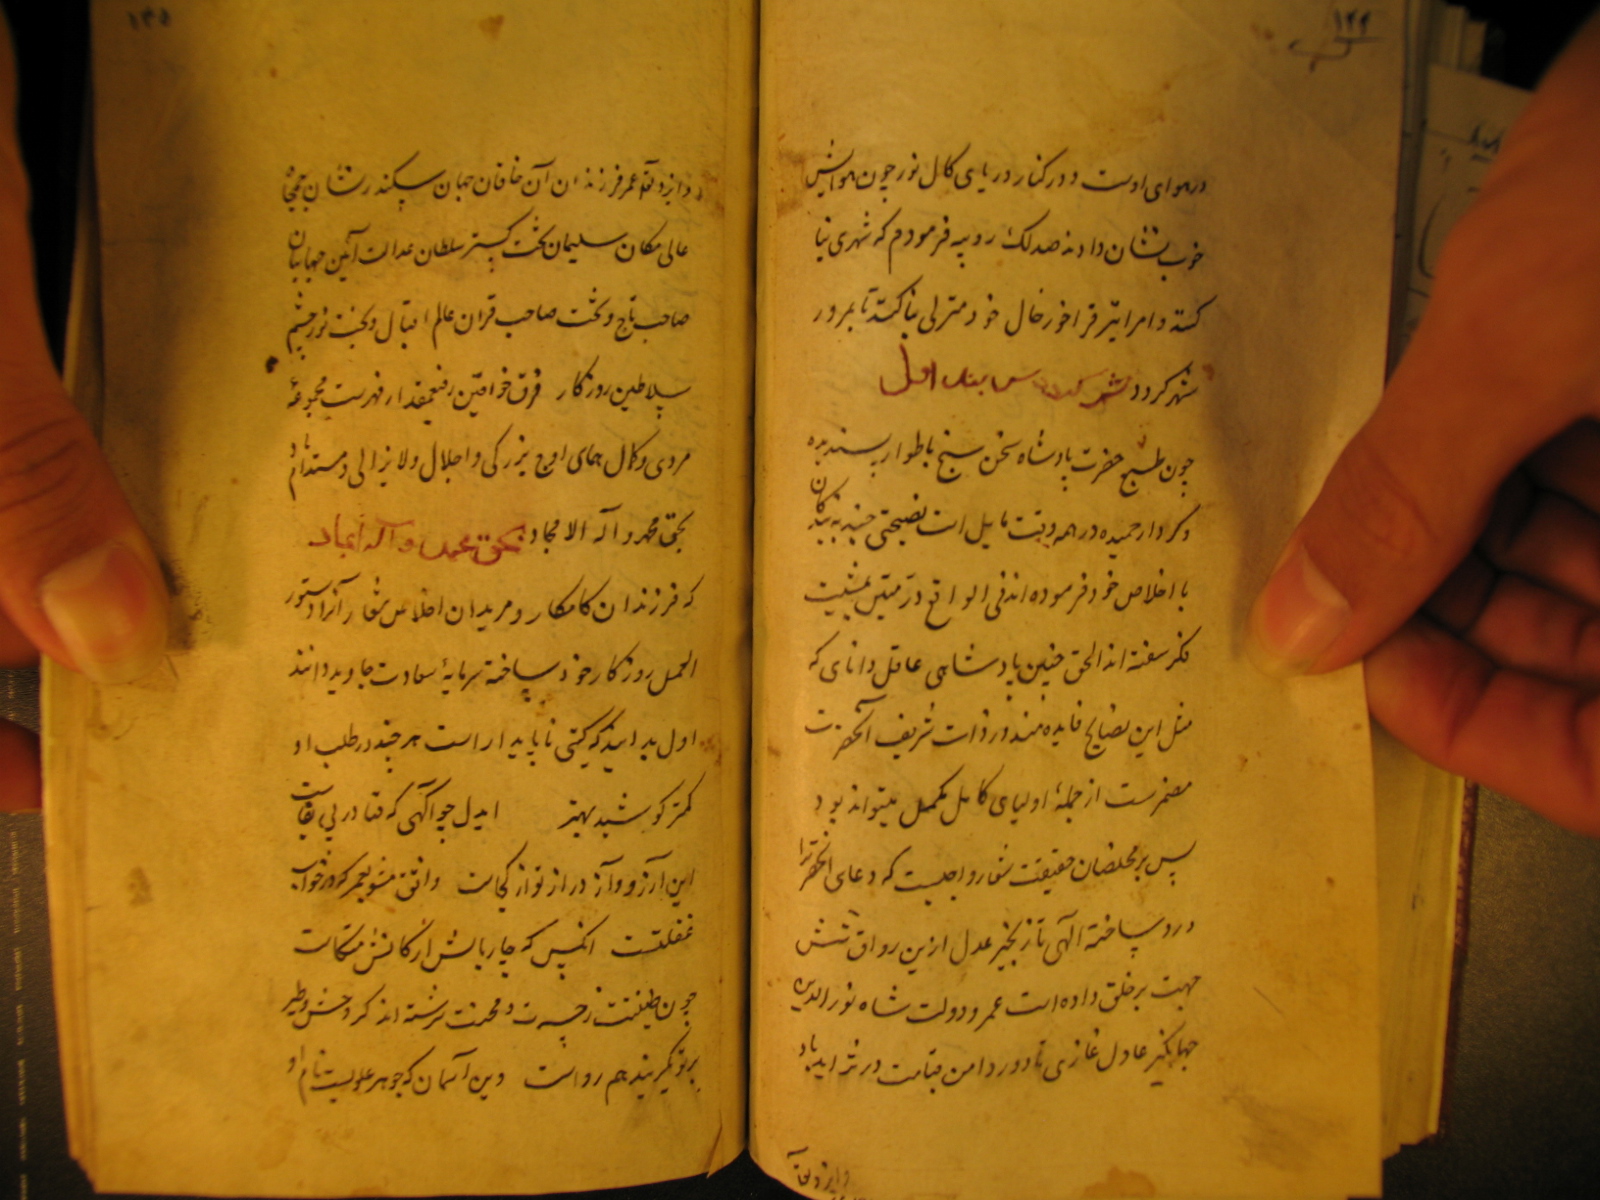 ۱۴۴
در هوای اوست و در کنار دریای کال نور چون هوایش
خوب نشان دادند صد لک روپیه فرمودم که شهری بنا
کنند و امرا نیز فراخور حال خود منزلی بنا کنند تا بمرور
شهر کردد
چون طبع حضرت پادشاه سخن سنج باطوار پسندیده
و کردار حمیده در همه وقت مایل است نصیحتی چند به بندکان
با اخلاص خود فرموده اند فی الواقع در متین بمشیت
فکر سفته اند الحق چنین پادشاهی عاقل دانای که
مثل این نصایح فایده مند در ذات شریف آنحضرت
مضمرست از جملهٔ اولیای کامل مکمل میتواند بود
پس بر مخلصان حقیقت شعار واجبست که دعای آنحضرترا
ورد ساخته الهی تا زنجیر عدل ازین رواق شش
جهت بر خلق داده است عمر و دولت شاه نورالدین
جهانکیر عادل غازی تا دور دامن قیامت در تزاید باد
و از دوله
۱۴۵
و از دوله عمر فرزندان آن خاقان جهان سکندر نشان
عالی مکان سلیمان تخت کستر سلطان عدالت آیین جهانبان
صاحب تاج و تخت صاحب قران عالم اقبال و بخت نور چشم
سلاطین روزکار فرق خواقین رفیعمقدار فهرست مجموعهٔ
مردی و کمال همای اوج بزرکی و اجلال ولایزالی و مستدام باد
بحق محمد و آله الامجاد بحق محمد و آله امجاد
که فرزندان کامکار و مریدان اخلاص شعار آنرا دستور
العمل روزکار خود ساخته سرمایهٔ سعادت جاوید دانند
اول بدانید که کیتی ناپایدار است هر چند در طلب او
کمتر کوشید بهتر ایدل چو آکهی که فنا در پی بقاست
این آرزو و آز دراز تو از کجاست واثق مشو بعمر که در خواب
غفلتست آنکس که چار بالش ارکانش متکاست
چون طینتت ز حسرت و محنت سرشته اند کر وحش و طیر
بر تو بکریند هم رواست وین آسمان که جوهر علویست نام او